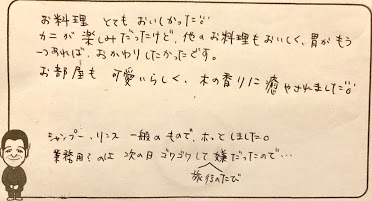 お料理 とても おいしかった!!
カニが 楽しみだったけど、他のお料理もおいしく、胃が もう
一つあれば、おかわりしたかったです。
お部屋も 可愛いらしく、木の香りに 癒やされました!!
シャンプー、リンス 一般のもので、ホッとしました。
業務用?のは 次の日 ゴワゴワして 嫌だったので…
旅行のたび